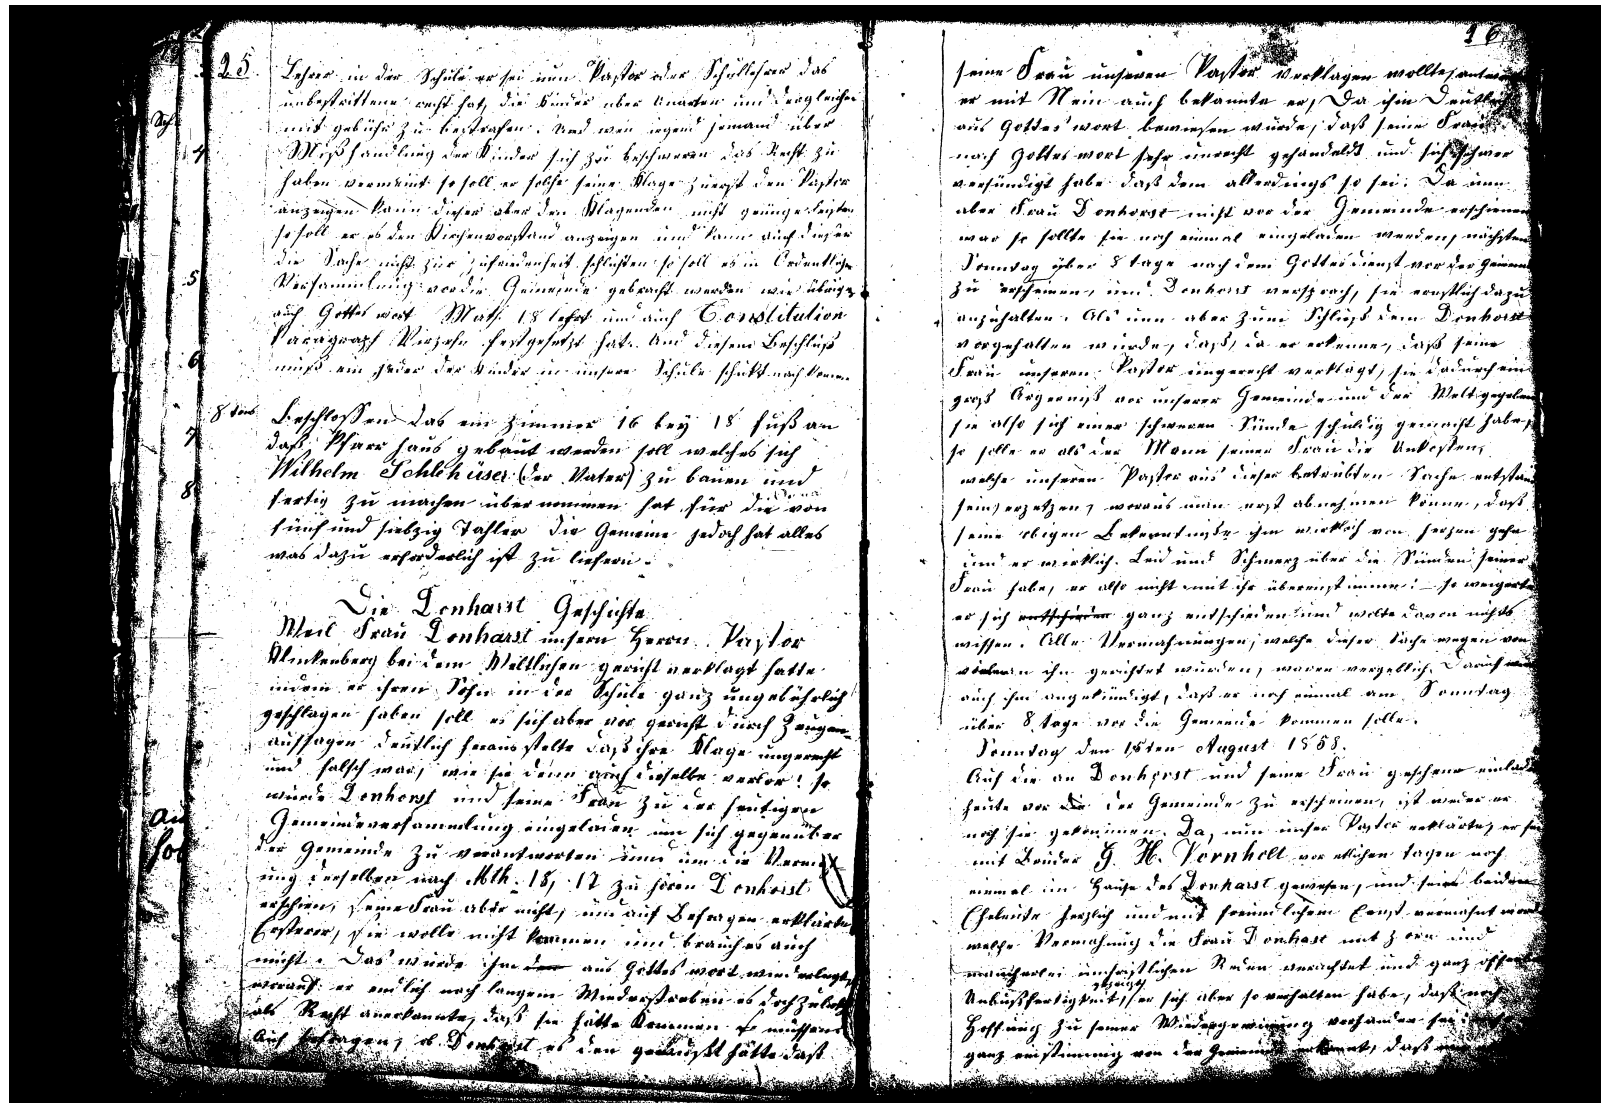 25.
Lehrer in der Schule er sei nun Pastor oder Schullehrer das
unbestrittene recht hat, die Kinder uber Unarten und dergleichen
mit gebühr zu bestrafen. Und wen irgend jemand über
Mißhandlung der Kinder sich zu beschweren das Recht zu
haben vermeint so soll er solche seine Klage zuerst den Pastor
anzeigen kann dieser aber den Klagenden nicht genüge leisten
so soll er es den Kirchenvorstand anzeigen und kann auch dieser
die Sache nicht zur zufriedenheit schlichten so soll es in Ordentlicher
Versammlung vor die Gemeinde gebracht werden wie übrigens
auch Gottes wort Math. 18 lehrt und auch Constitution
Paragraph Vierzehn festgesetzt hat. Und diesem Beschluß
muß ein Jeder der Kinder in unsere Schule schickt nach komen.
8tens Beschlossen das ein Zimmer 16 bey 18 fuß an
daß Pfarr haus gebaut werden soll welches sich
Wilhelm Schlehüser (der Vater) zu bauen und
fertig zu machen über nommen hat für die von
fünf und siebzig Tahler die Gemeine jedoch hat alles
was dazu erforderlich ist zu liefern.
Die Donharst Geschichte
Weil Frau Donharst unsern Herrn Pastor
Klinkenberg bei dem Weltlichen gericht verklagt hatte
indem er ihren Sohn in der Schule ganz ungebührlich
geschlagen haben soll es sich aber vor gericht durch Zeugen-
aussagen deutlich heraus stelte daß ihre Klage ungerecht
und falsch war, wie sie denn auch dieselbe verlor! so
wurde Donhorst und seine Frau zu der heutigen
Gemeindeversammlung eingeladen um sich gegenüber
der Gemeinde zu verantworten und um die Vermah
ung derselben nach Mth. 18, 17 zu hören Donhorst
erschien, seine Frau aber nicht, und auf Befragen erklärte
Ersterer, sie wolle nicht kommen und brauch es auch
nicht. Das wurde ihm aus Gottes wort wiederlegt,
worauf er endlich nach langem Wiederstreben es doch zuletzt
als Recht anerkannte, daß sie hätte kommen müssen.
Auf befragen, ob Donhorst es den gewußt hätte daß
26.
seine Frau unseren Pastor verklagen wollte, antwor
er mit Nein auch bekannte er, Da ihm deutlich
aus Gottes wort bewiesen wurde, daß seine Frau
nach Gottes wort sehr unrecht gehandeldt und sich schwer
versündigt habe daß dem allerdings so sei. Da nun
aber Frau Donhorst nicht vor der Gemeinde erschienen
war so sollte sie noch einmal eingeladen werden, nächsten
Sonntag über 8 tage nach dem Gottesdienst vor der Gemeinde
zu erscheinen, und Donhorst versprach, sie ernstlich dazu
anzuhalten. Als nun aber zum Schluß dem Donhorst
vorgehalten wurde, daß, da er erkenne, daß seine
Frau unseren Pastor ungerecht verklagt, sie dadurch ein
groß Ärgerniß vor unserer Gemeinde und der Welt gegeben
sie also sich einer schweren Sünde schuldig gemacht habe,
so solle er als der Mann seiner Frau die Unkosten,
welche unserem Pastor aus dieser betrübten Sache entstan
sein, ersetzen, woraus man erst abnehmen könne, daß
seine obigen Bekenntniße ihm wirklich von herzen gehe
und er wirklich Leid und Schmerz über die Sünden seiner
Frau habe, er also nicht mit ihr übereinstimme! so weigerte
er sich entschieden ganz entschieden und wolte davon nichts
wissen. Alle Vermahnungen, welche dieser Sache wegen von
an ihn gerichtet wurden, waren vergeblich. Darauf
auch ihm angekündigt, daß er noch einmal am Sonntag
über 8 tage vor die Gemeinde kommen solle.
Sonntag den 15ten August 1858.
Auf die an Donhorst und seine Frau geschene einlad
heute vor der Gemeinde zu erscheinen, ist weder er
noch sie gekommen. Da, nun unser Pastor erklärte, er sei
mit Bruder G. H. Vornholt vor etlichen tagen noch
einmal im Hause des Donharst gewesen, und seine beiden
Eheleute herzlich und mit freundlichem Ernst vermahnt
welche Vermahnung die Frau Donharst mit zorn und
mancherlei unchristlichen Reden verachtet und ganz offen
Unbußfertigkeit, gezeigt er sich aber so verhalten habe, daß noch
Hoffnung zu seiner Wiedergewinnung vorhanden sei
ganz einstimmig von der Gemeinde erkannt, daß